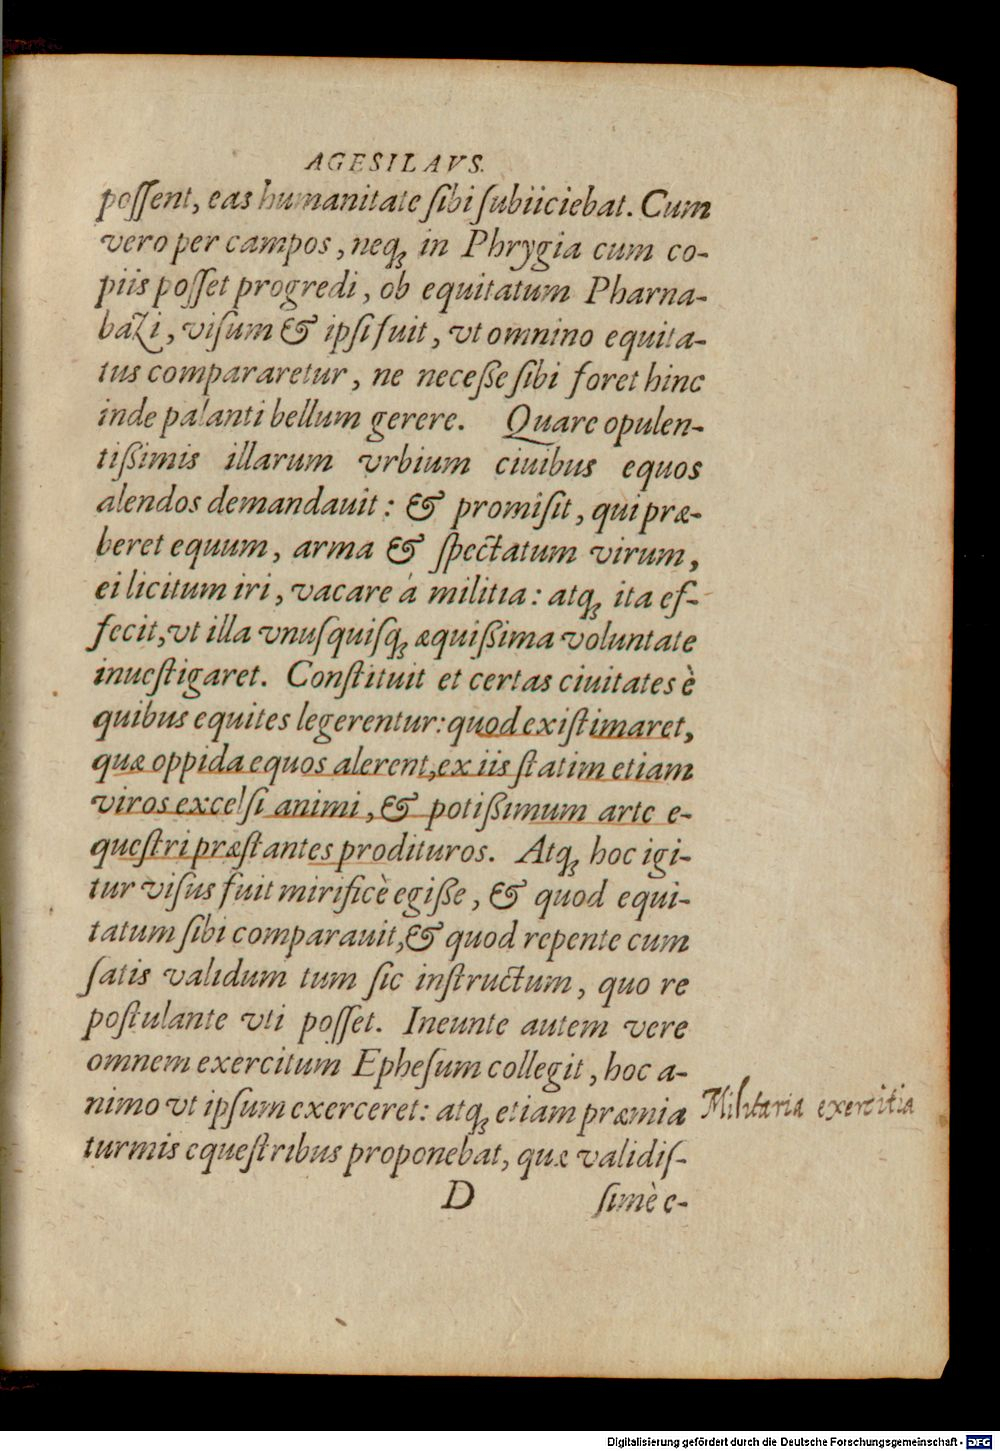 AGESILAVS.
poſſent, eas humanitate ſibi ſubiiciebat. Cum
vero per campos, neq; in Phrygia cum co-
piis poſſet progredi, ob equitatum Pharna-
bazi, viſum & ipſi fuit, vt omnino equita-
tus compararetur, ne neceſſe ſibi foret hinc
inde palanti bellum gerere. Quare opulen-
tiſsimis illarum vrbium ciuibus equos
alendos demandauit: & promiſit, qui præ-
beret equum, arma & ſpectatum virum,
ei licitum iri, vacare á militia: atq; ita ef-
fecit, vt illa vnuſquiſq; æquiſsima voluntate
inueſtigaret. Conſtituit et certas ciuitates è
quibus equites legerentur: quod exiſtimaret,
quæ oppida equos alerent, ex iis ſtatim etiam
viros excelſi animi, & potiſsimum arte e-
queſtri præſtantes prodituros. Atq; hoc igi-
tur viſus fuit mirificè egiſſe, & quod equi-
tatum ſibi comparauit, & quod repente cum
ſatis validum tum ſic inſtructum, quo re
poſtulante vti poſſet. Ineunte autem vere
omnem exercitum Epheſum collegit, hoc a-
nimo vt ipſum exerceret: atq; etiam præmia
Militaria exercitia
turmis equeſtribus proponebat, quæ validiſ-
D ſimè e-
Digitalisierung gefördert durch die Deutsche Forschungsgemeinschaft - DFG